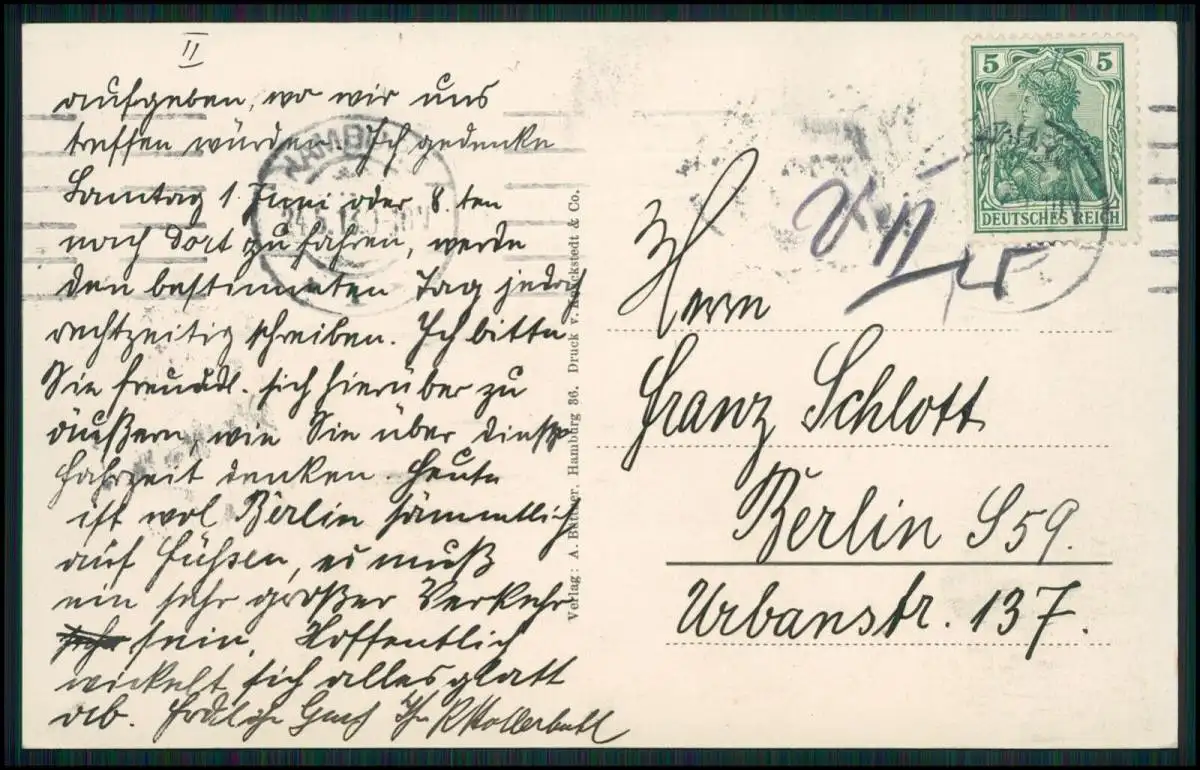 II
aufgeben, wo wir uns
treffen würden. Ich gedenke
Sonntag 1. Juni oder 8. ten
nach dort zu fahren, werde
den bestimmten Tag jedoch
rechtzeitig schreiben. Ich bitte
Sie freundl. sich hierüber zu
äußern, wie Sie über diese
Fahrzeit denken. Heute
ist wol Berlin sämmtlich
auf Füßen, es muß
ein sehr großer Verkehr
sein. Hoffentlich
wickelt sich alles glatt
ab. Ihr
Verlag: A. Hamburg 36. Druck v. & Co.
HAMBURG
24.5.13
5 5
DEUTSCHES REICH
Herrn
Franz Schlott
Berlin S59.
Urbanstr. 137.